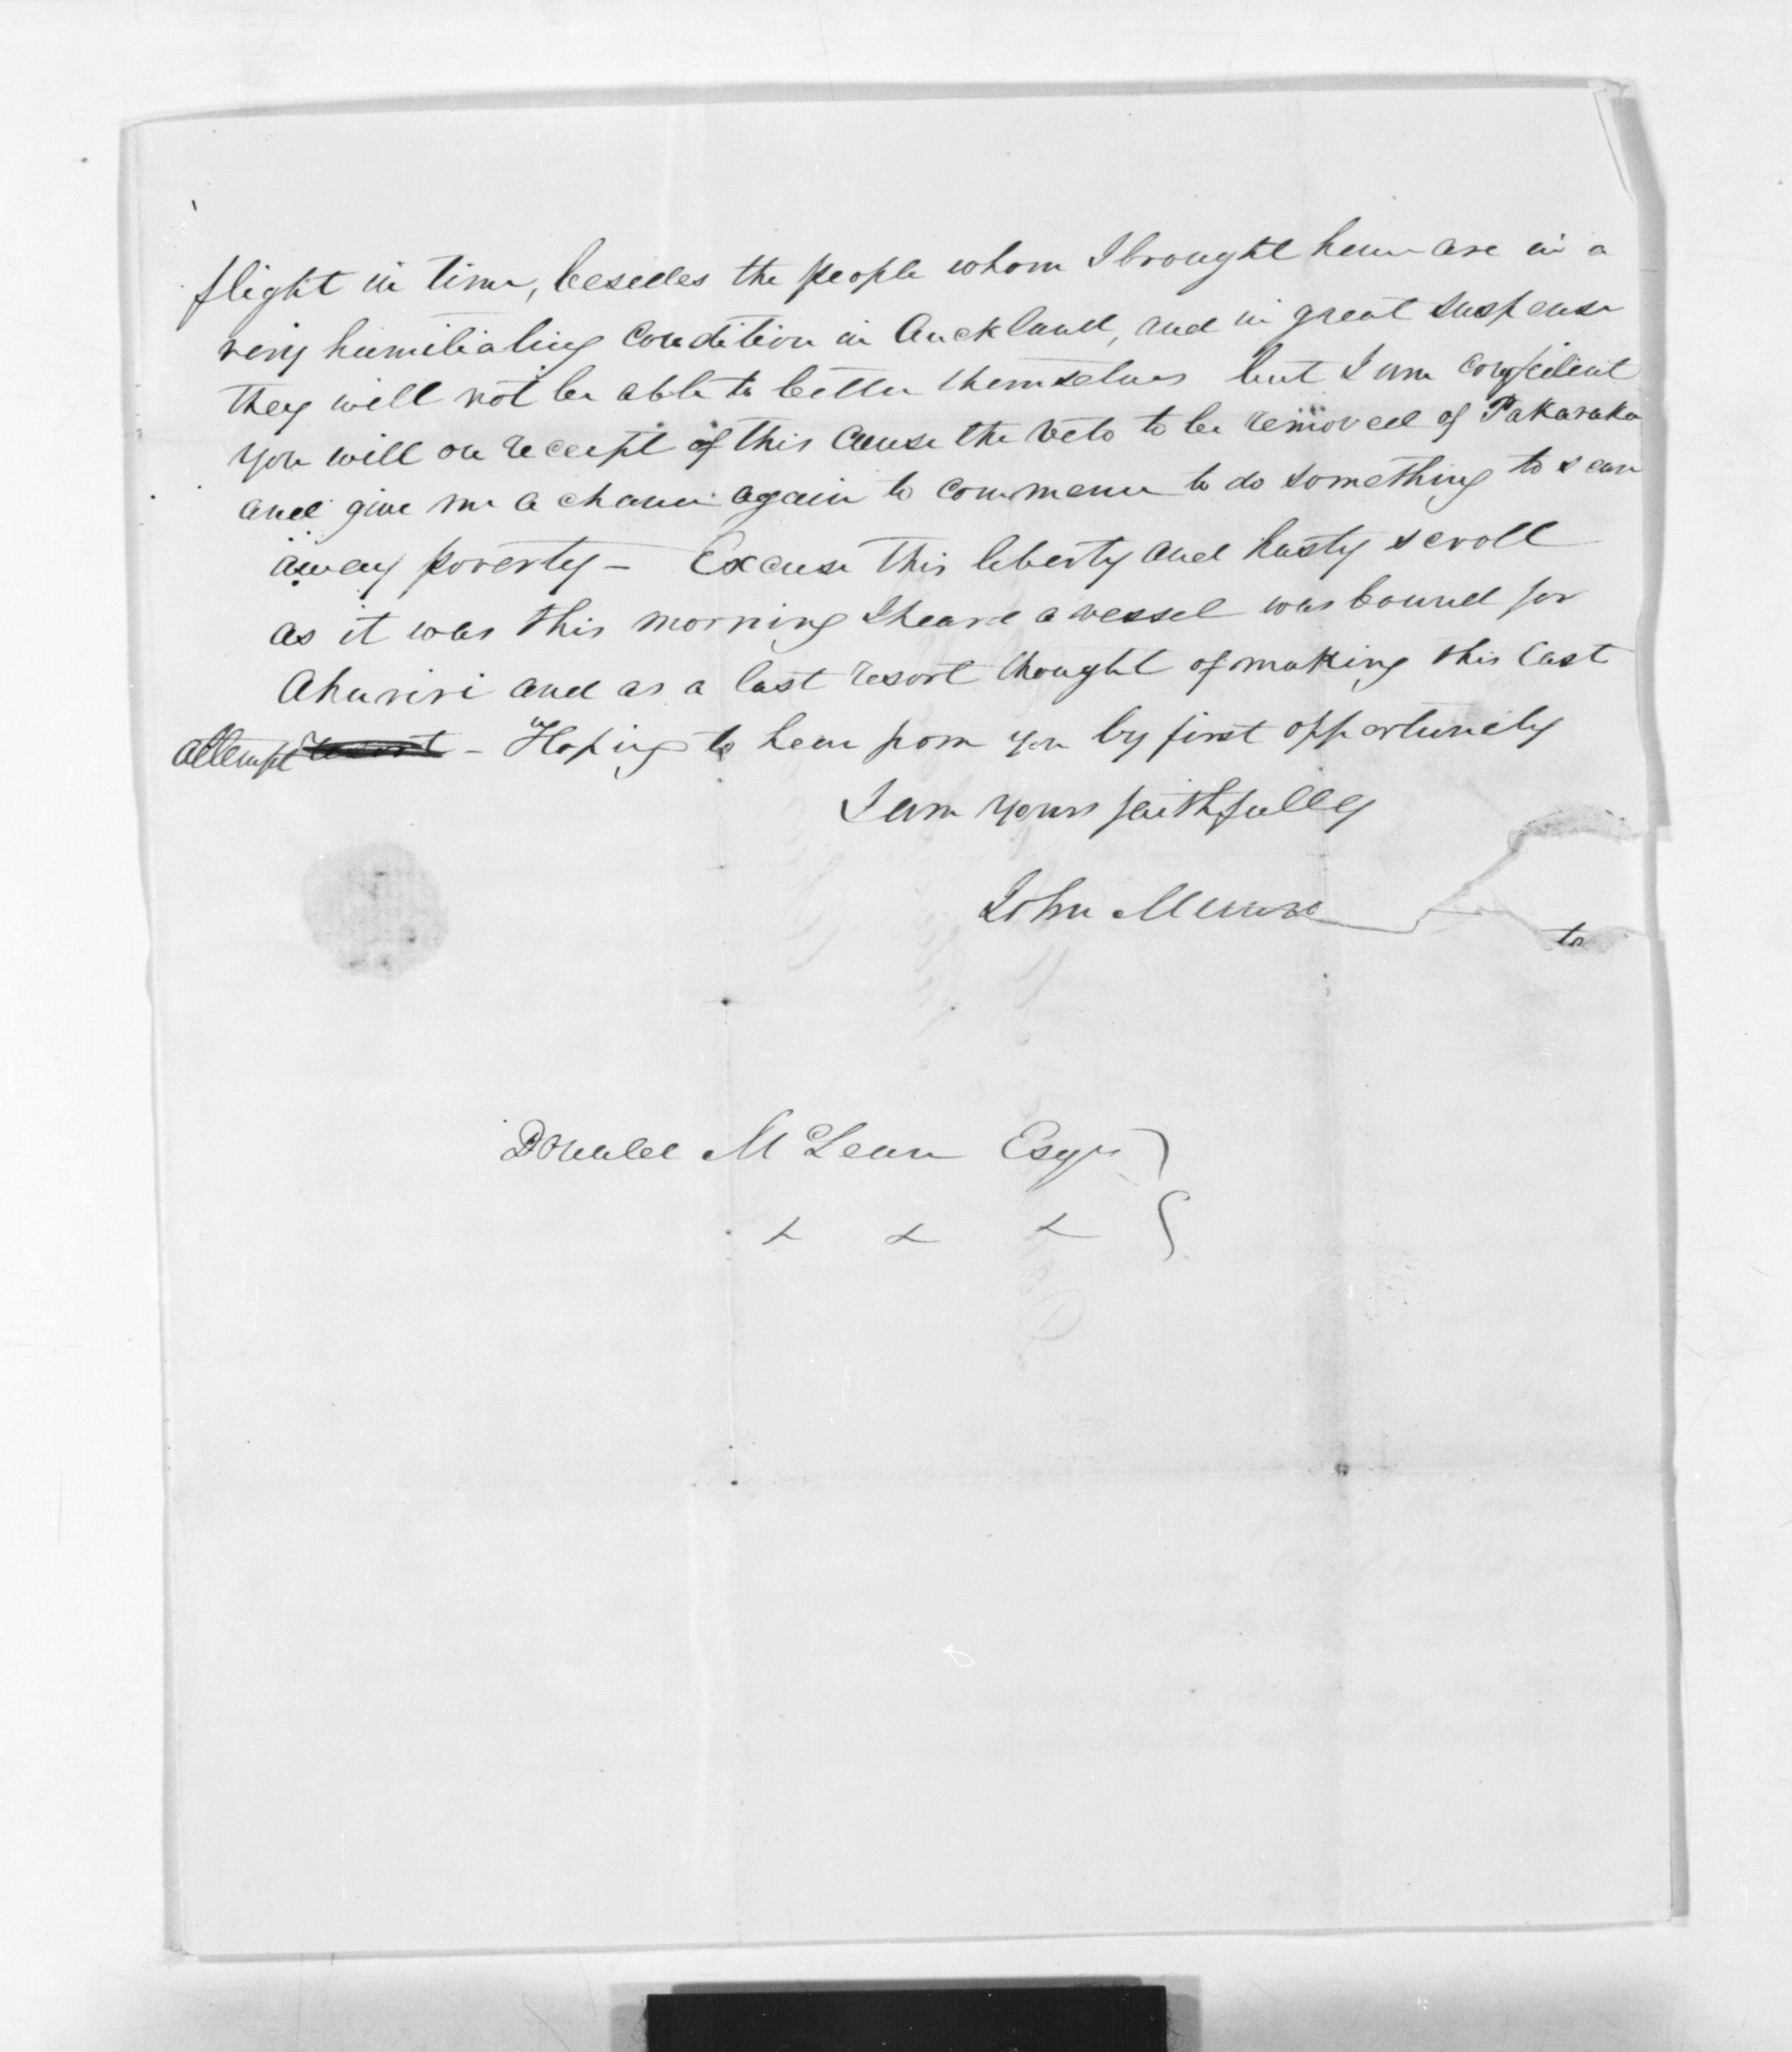 flight in time, besides the people whom I brought here are in a
very humiliating Condition in Auckland, and in great suspense
they will not be able to better themselves but I am confident
you will on receipt of this Cause the Veto to be removed of Pakaraka
and give me a chance again to commence to do something to scare
away poverty – Excuse this liberty and hasty scroll
as it was this morning I heard a vessel was bound for
Ahuriri and as a last resort thought of making this last
attempt resort – Hoping to hear from you by first opportunity
I am yours faithfully
John Munro
to
Donald McLean Esqr